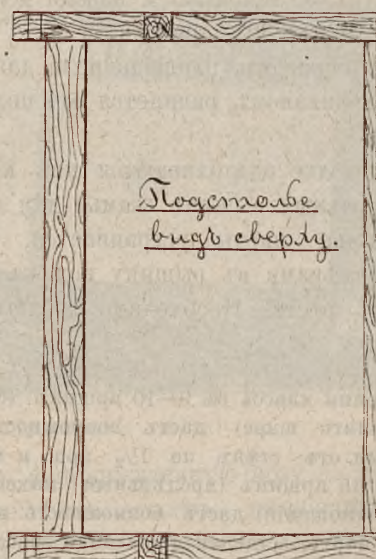 Подстолье
видъ сверху.